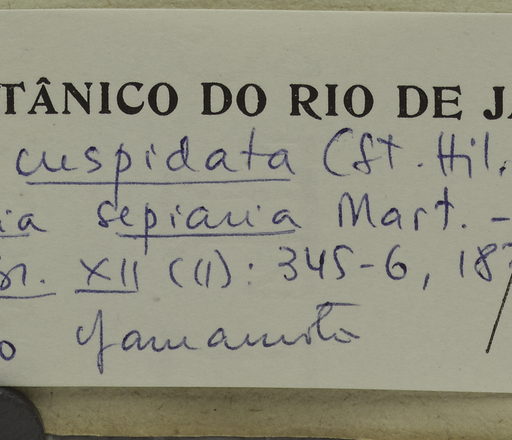 TÂNICO DO RIO DE JA
cuspidata (St. Hil.
ia sepiaria Mart. -
XII (II): 345-6, 187
o Yamamoto